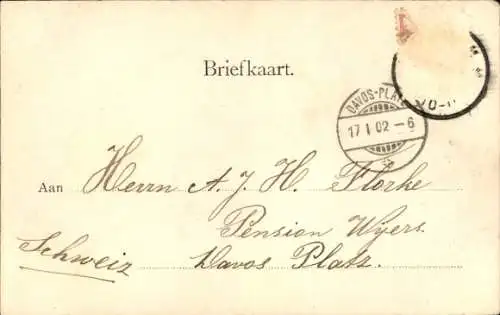 Briefkaart.
DAVOS-PLATZ
17 I 02 – 6
Aan Herrn A. J. H. Florke
Pension Wyers
Schweiz Davos Platz.